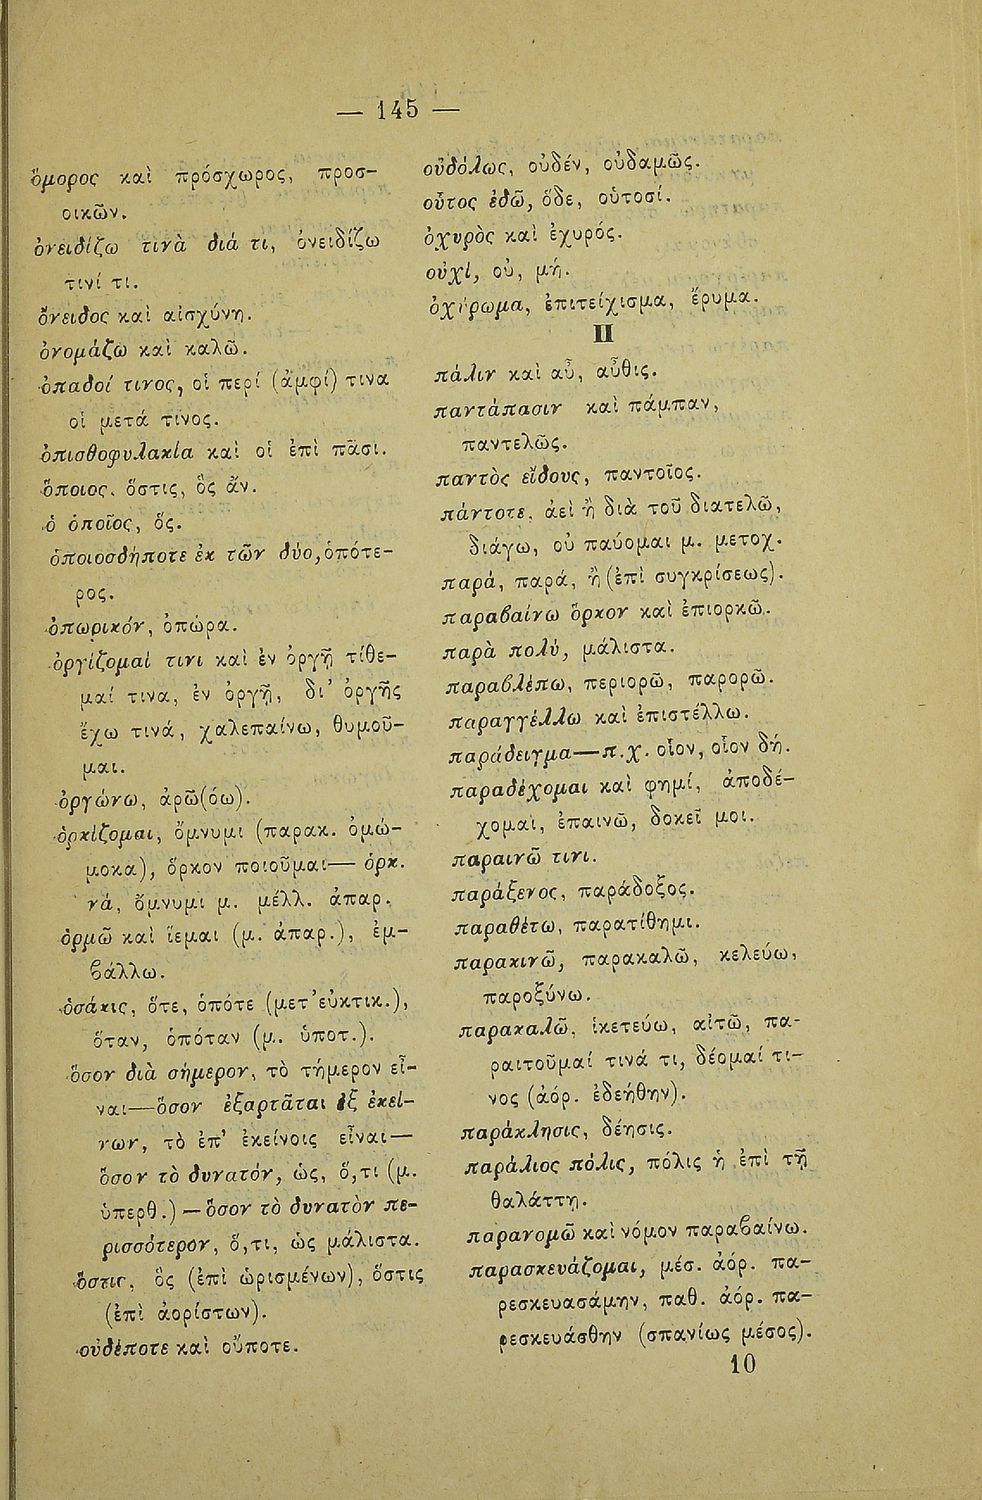 — 145 —
ὅμορος καὶ πρόσχωρος, προσ-
οικῶν.
ὀνειδίζω τινὰ διά τι, ὀνειδίζω
τινί τι.
ὄνειδος καὶ αἰσχύνη.
ὀνομάζω καὶ καλῶ.
ὀπαδοί τινος, οἱ περί (ἀμφί) τινα
οἱ μετά τινος.
ὀπισθοφυλακία καὶ οἱ ἐπὶ πᾶσι.
ὅποιος, ὅστις, ὃς ἄν.
ὁ ὁποῖος, ὅς.
ὁποιοσδήποτε ἐκ τῶν δύο, ὁπότε-
ρος.
ὀπωρικόν, ὀπώρα.
ὀργίζομαί τινι καὶ ἐν ὀργῇ τίθε-
μαί τινα, ἐν ὀργῇ, δι' ὀργῆς
ἔχω τινά, χαλεπαίνω, θυμοῦ-
μαι.
ὀργώνω, ἀρῶ(όω).
ὁρκίζομαι, ὄμνυμι (παρακ. ὀμώ-
μοκα), ὅρκον ποιοῦμαι— ὁρκ.
νά, ὄμνυμι μ. μέλλ. ἀπαρ.
ὁρμῶ καὶ ἵεμαι (μ. ἀπαρ.), ἐμ-
βάλλω.
ὁσάκις, ὅτε, ὁπότε (μετ' εὐκτικ.),
ὅταν, ὁπόταν (μ. ὑποτ.).
ὅσον διὰ σήμερον, τὸ τήμερον εἶ-
ναι—ὅσον ἐξαρτᾶται ἐξ ἐκεί-
νων, τὸ ἐπ' ἐκείνοις εἶναι—
ὅσον τὸ δυνατόν, ὡς, ὅ,τι (μ.
ὑπερθ.) — ὅσον τὸ δυνατὸν πε-
ρισσότερον, ὅ,τι, ὡς μάλιστα.
ὅστις, ὃς (ἐπὶ ὡρισμένων), ὅστις
(ἐπὶ ἀορίστων).
οὐδέποτε καὶ οὔποτε.
οὐδόλως, οὐδέν, οὐδαμῶς.
οὗτος ἐδῶ, ὅδε, οὑτοσί.
ὀχυρὸς καὶ ἐχυρός.
οὐχί, οὐ, μή.
ὀχύρωμα, ἐπιτείχισμα, ἔρυμα.
Π
πάλιν καὶ αὖ, αὖθις.
παντάπασιν καὶ πάμπαν,
παντελῶς.
παντὸς εἴδους, παντοῖος.
πάντοτε, ἀεὶ ἢ διὰ τοῦ διατελῶ,
διάγω, οὐ παύομαι μ. μετοχ.
παρά, παρά, ἢ (ἐπὶ συγκρίσεως).
παραβαίνω ὅρκον καὶ ἐπιορκῶ.
παρὰ πολύ, μάλιστα.
παραβλέπω, περιορῶ, παρορῶ.
παραγγέλλω καὶ ἐπιστέλλω.
παράδειγμα—π.χ. οἷον, οἷον δή.
παραδέχομαι καὶ φημί, ἀποδέ-
χομαι, ἐπαινῶ, δοκεῖ μοι.
παραινῶ τινι.
παράξενος, παράδοξος.
παραθέτω, παρατίθημι.
παρακινῶ, παρακαλῶ, κελεύω,
παροξύνω.
παρακαλῶ, ἱκετεύω, αἰτῶ, πα-
ραιτοῦμαί τινά τι, δέομαί τι-
νος (ἀόρ. ἐδεήθην).
παράκλησις, δέησις.
παράλιος πόλις, πόλις ἡ ἐπὶ τῇ
θαλάττῃ.
παρανομῶ καὶ νόμον παραβαίνω.
παρασκευάζομαι, μέσ. ἀόρ. πα-
ρεσκευασάμην, παθ. ἀόρ. πα-
ρεσκευάσθην (σπανίως μέσος).
10